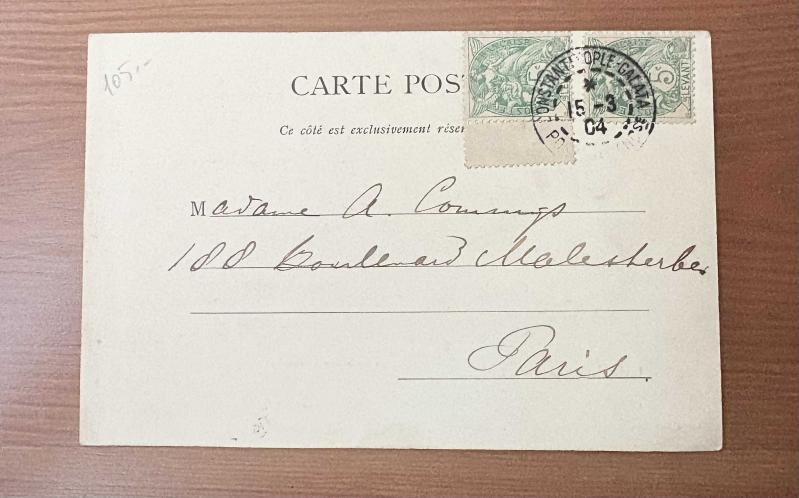 105.-
CARTE POS
Ce côté est exclusivement réser
5
LEVANT
CONSTANTINOPLE-GALATA
15-3
04
Madame A. Commings
188 Boulevard Malesherbes
Paris.